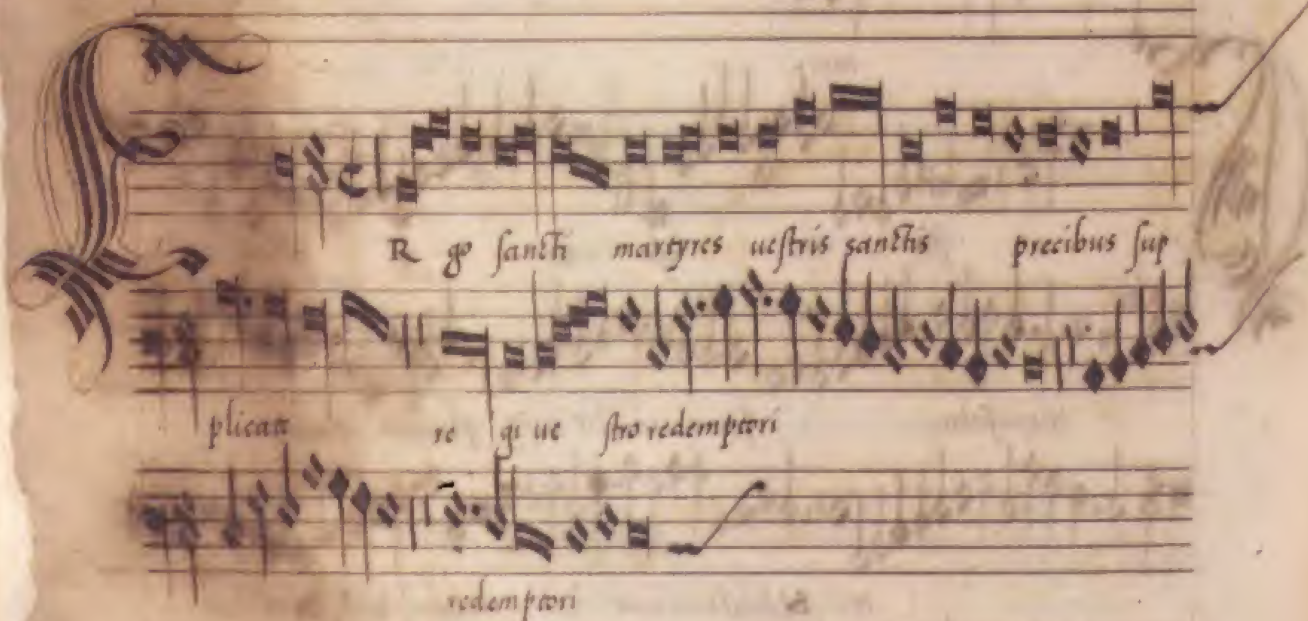 ERgo sancti martyres uestris sanctis precibus sup
plicate re gi ue stro redemptori
redemptori